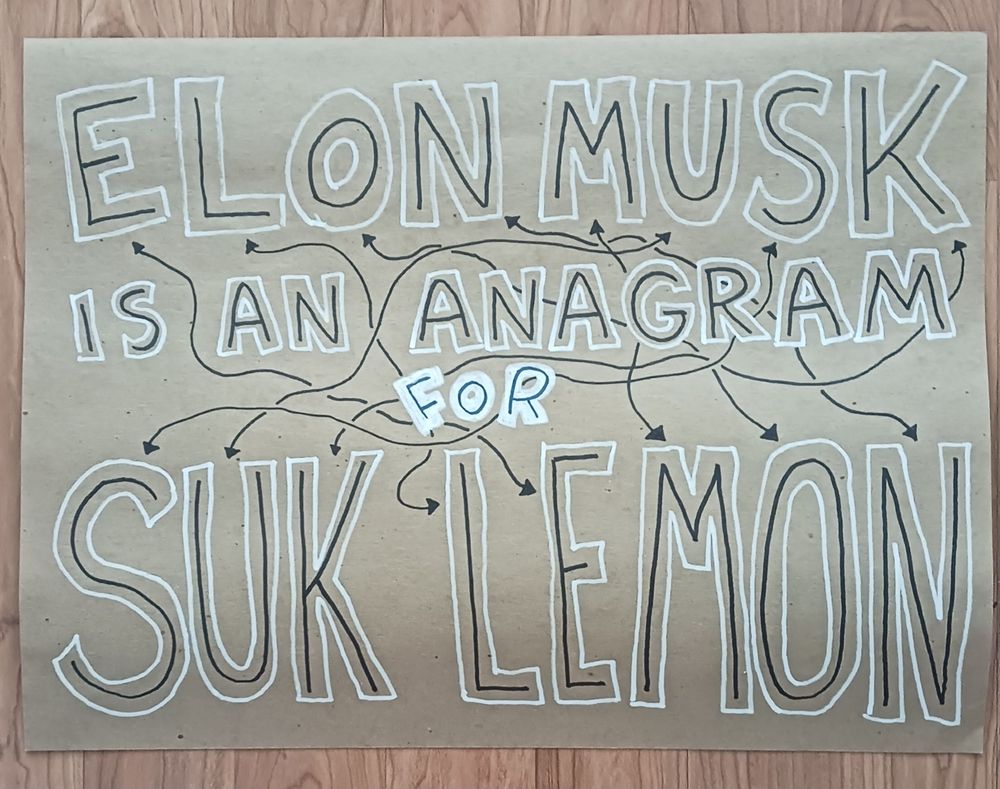 ELON MUSK
IS AN ANAGRAM
FOR
SUK LEMON